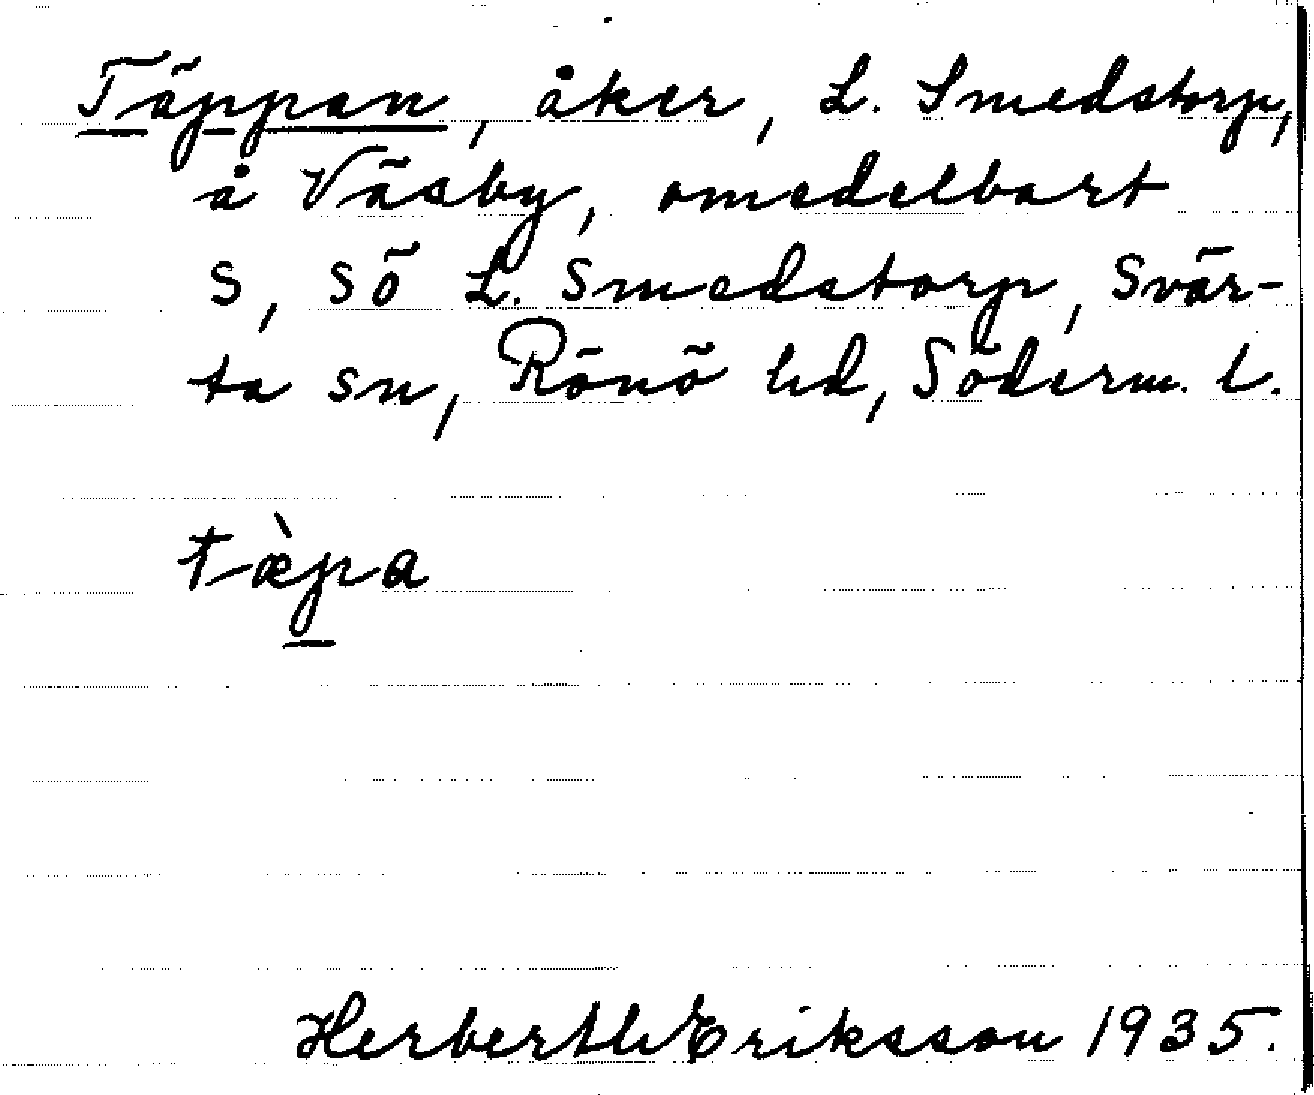 Täppan, åker, L. Smedstorp,
å Väsby, omedelbart
S, SÖ L. Smedstorp, Svär-
ta sn, Rönö hd, Söderm. l.
tæ̀p̲a
Herberth Eriksson 1935.